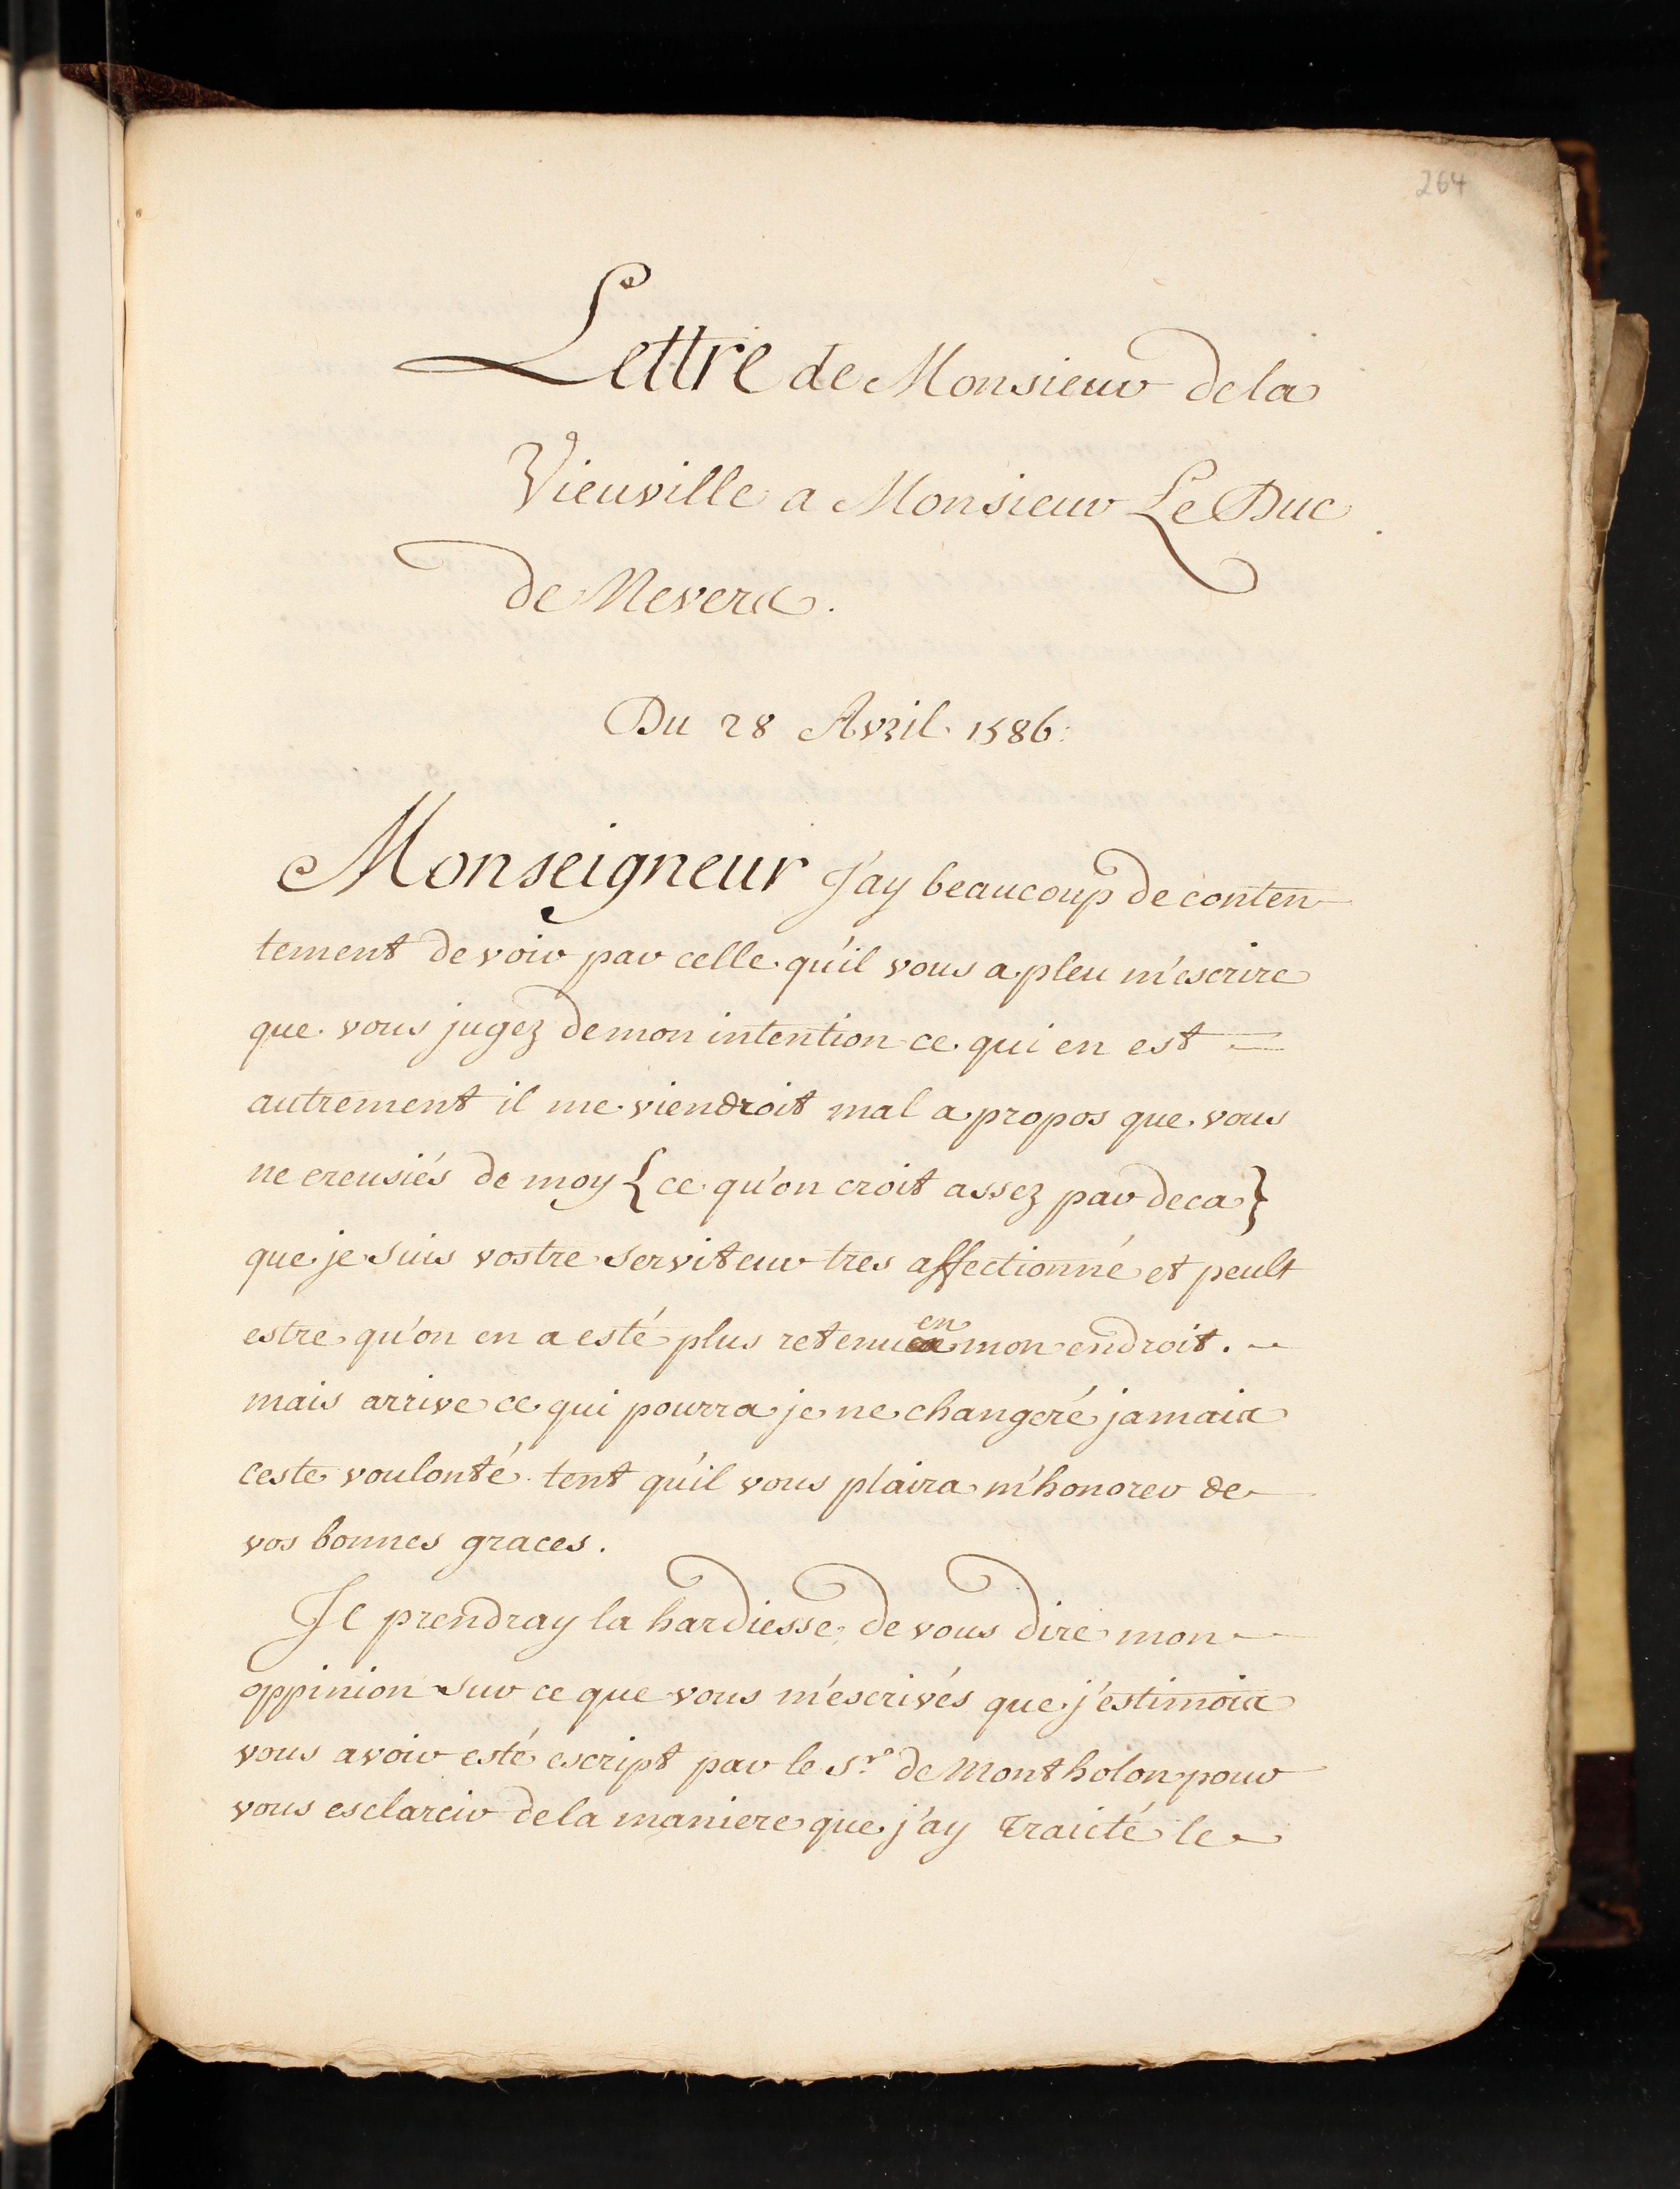 264
Lettre de Monsieur de la
Vieuville a Monsieur Le Duc
de Nevers.
Du 28 Avril 1586.
Monseigneur J'ay beaucoup de conten
tement de voir par celle qu'il vous a pleu m'escrire
que vous jugez de mon intention ce qui en est =
autrement il me viendroit mal a propos que vous
ne creusiés de moy {ce qu'on croit assez par deca}
que je suis vostre serviteur tres affectionné et peult
estre qu'on en a esté plus retenu en mon endroit.
mais arrive ce qui pourra je ne changeré jamais
ceste voulonté tent qu'il vous plaira m'honorer de
vos bonnes graces.
Je prendray la hardiesse de vous dire mon
oppinion sur ce que vous m'escrivés que j'estimois
vous avoir esté escript par le Sr. de Montholon pour
vous esclarcir de la maniere que j'ay traicté le